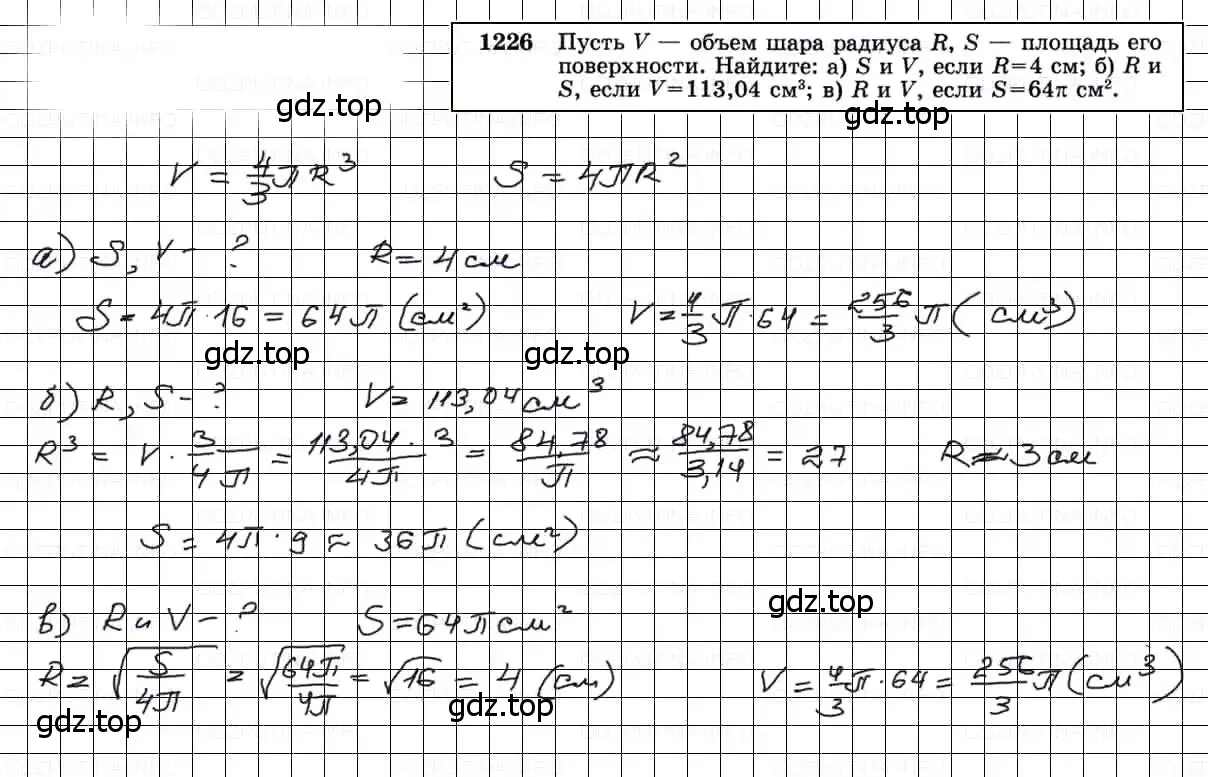 1226 Пусть V — объем шара радиуса R, S — площадь его
поверхности. Найдите: а) S и V, если R=4 см; б) R и
S, если V=113,04 см³; в) R и V, если S=64π см².
gdz.top
gdz.top
V = 4/3 πR³ S = 4πR²
а) S, V - ? R = 4 см
S = 4π·16 = 64π (см²) V = 4/3 π·64 = 256/3 π (см³)
gdz.top
gdz.top
б) R, S - ? V = 113,04 см³
R³ = V · 3/4π = 113,04 · 3/4π = 84,78/π ≈ 84,78/3,14 = 27 R ≈ 3 см
S = 4π · 9 ≈ 36π (см²)
gdz.top
в) R и V - ? S = 64π см²
R = √S/4π = √64π/4π = √16 = 4 (см) V = 4/3 π · 64 = 256/3 π (см³)
gdz.top
gdz.top